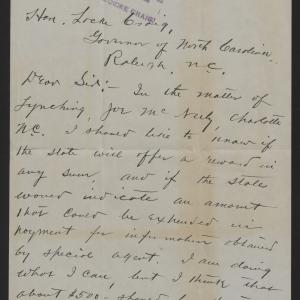 LOCKE CRAIG
Hon. Locke Craig,
Governor of North Carolina
Raleigh, N.C.
Dear Sir:- In the matter of
lynching, Joe McNeely, Charlotte
N.C. I should like to know if
the state will offer a reward in
any sum, and if the state
would indicate an amount
that could be expended in
payment for information obtained
by special agent. I am doing
what I can, but I think that
about $500.- should be